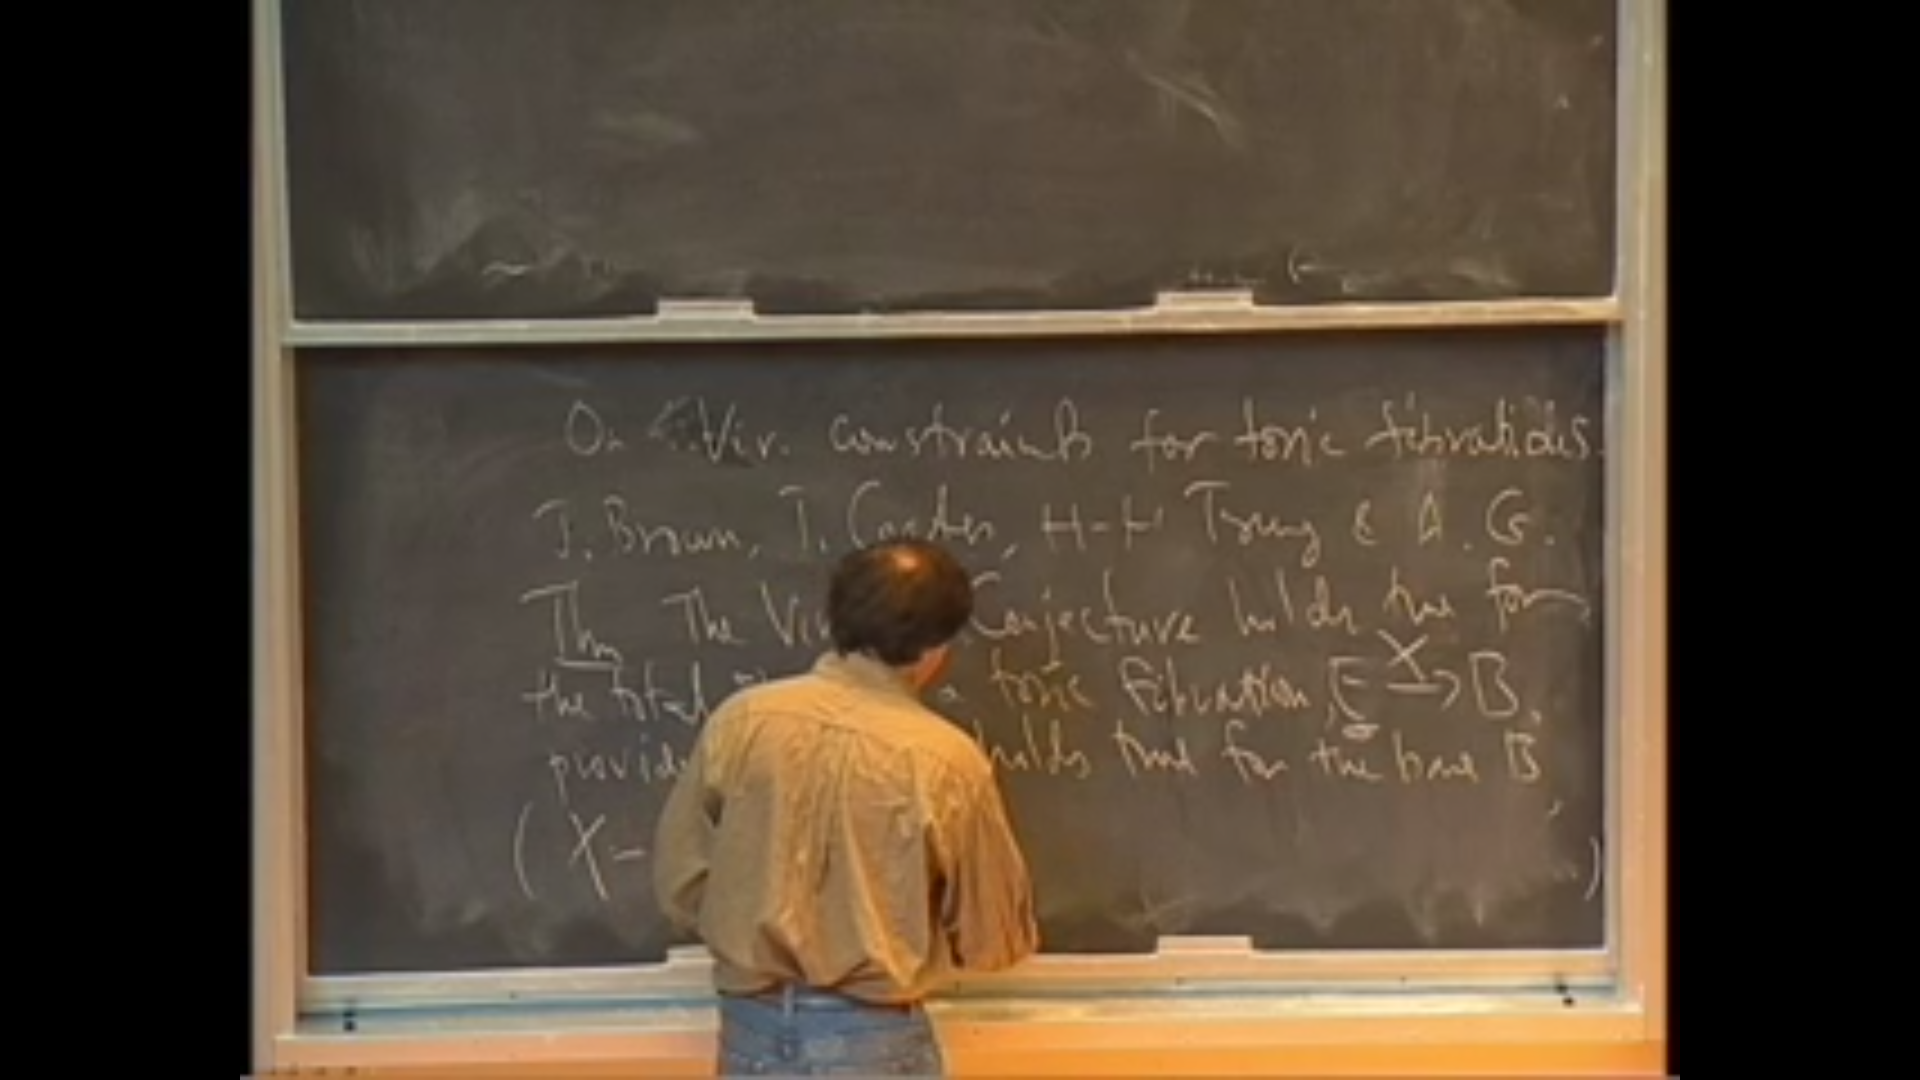 On Vir. constraints for toric fibrations.
J. Brown, T. Coates, H-H Tseng & A. G.
Thm The Vir Conjecture holds true for
the total a toric fibration E X→ B,
provid holds true for the base B,
( X - )